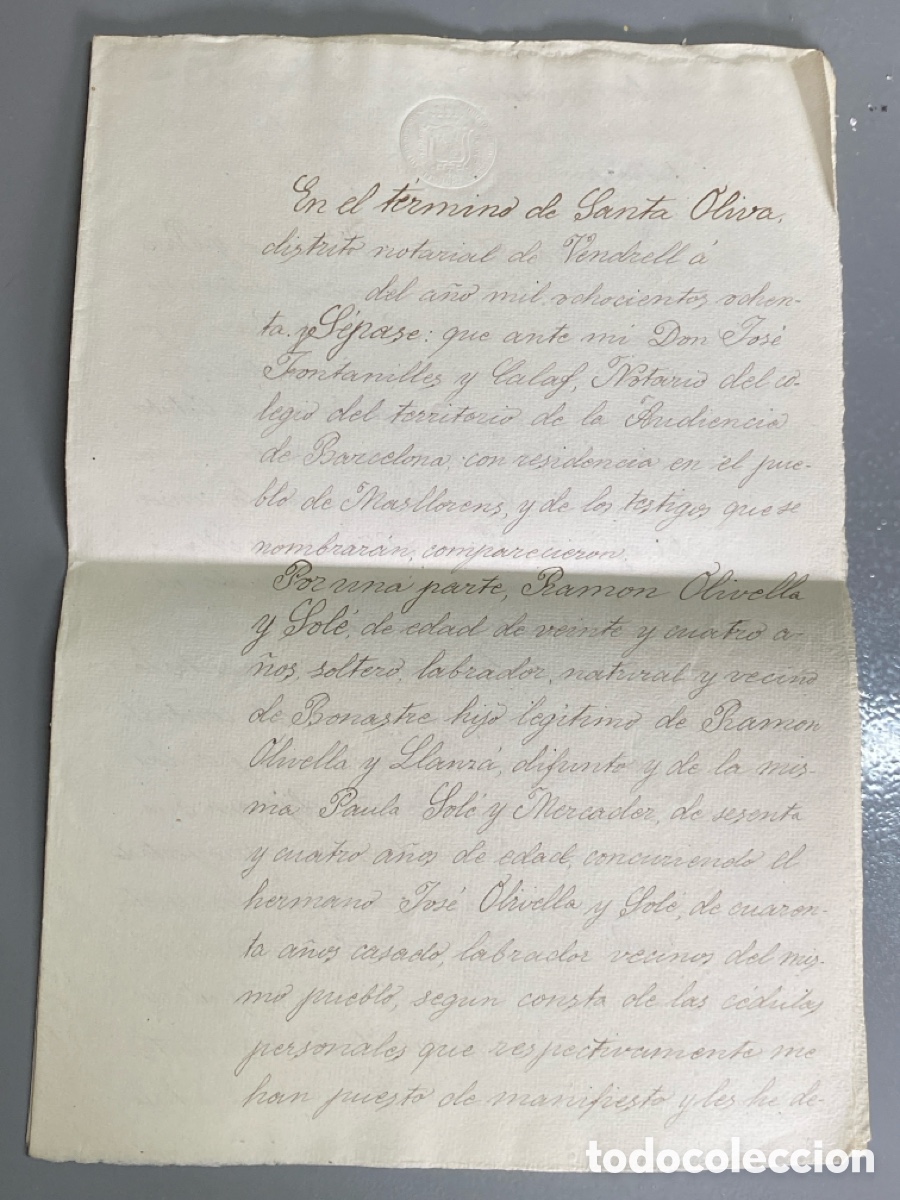 En el término de Santa Oliva,
distrito notarial de Vendrell á
del año mil ochocientos ochen-
ta y Sépase: que ante mi Don José
Fontanilles y Calaf, Notario del co-
legio del territorio de la Audiencia
de Barcelona, con residencia en el pue-
blo de Masllorens, y de los testigos que se
nombrarán, comparecieron.
Por una parte, Ramon Olivella
y Solé, de edad de veinte y cuatro a-
ños, soltero, labrador, natural y vecino
de Bonastre hijo legitimo de Ramon
Olivella y Llanzá, difunto y de la mis-
ma Paula Solé y Mercader, de sesenta
y cuatro años de edad, concurriendo el
hermano José Olivella y Solé, de cuaren-
ta años casado, labrador vecinos del mis-
mo pueblo, segun consta de las cédulas
personales que respectivamente me
han puesto de manifiesto y les he de-
todocoleccion